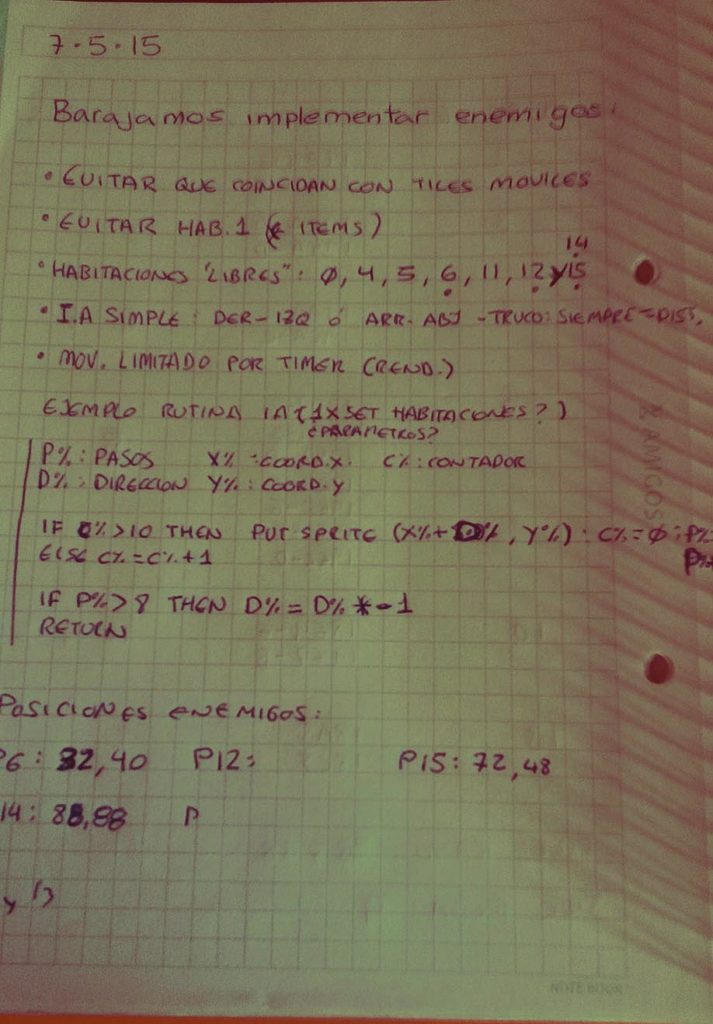 7.5.15
Barajamos implementar enemigos:
• EVITAR QUE COINCIDAN CON TILES MOVILES
• EVITAR HAB.1 ( ITEMS)
14
• HABITACIONES "LIBRES": 0, 4, 5, 6, 11, 12 y 15
• I.A SIMPLE: DER-IZQ ó ARR-ABJ - TRUCO: SIEMPRE = DIST.
• MOV. LIMITADO POR TIMER (REND.)
EJEMPLO RUTINA IA (1 X SET HABITACIONES?)
¿PARAMETROS?
P%: PASOS X%: COORD.X. C%: CONTADOR
D%: DIRECCION Y%: COORD.Y
IF C%>10 THEN PUT SPRITE (X%+D%, Y%): C%=0: P%
ELSE C%=C%+1
IF P%>8 THEN D%=D%*-1
RETURN
POSICIONES ENEMIGOS:
P6: 32,40 P12: P15: 72,48
14: 88,88 P
NOTE BOOK